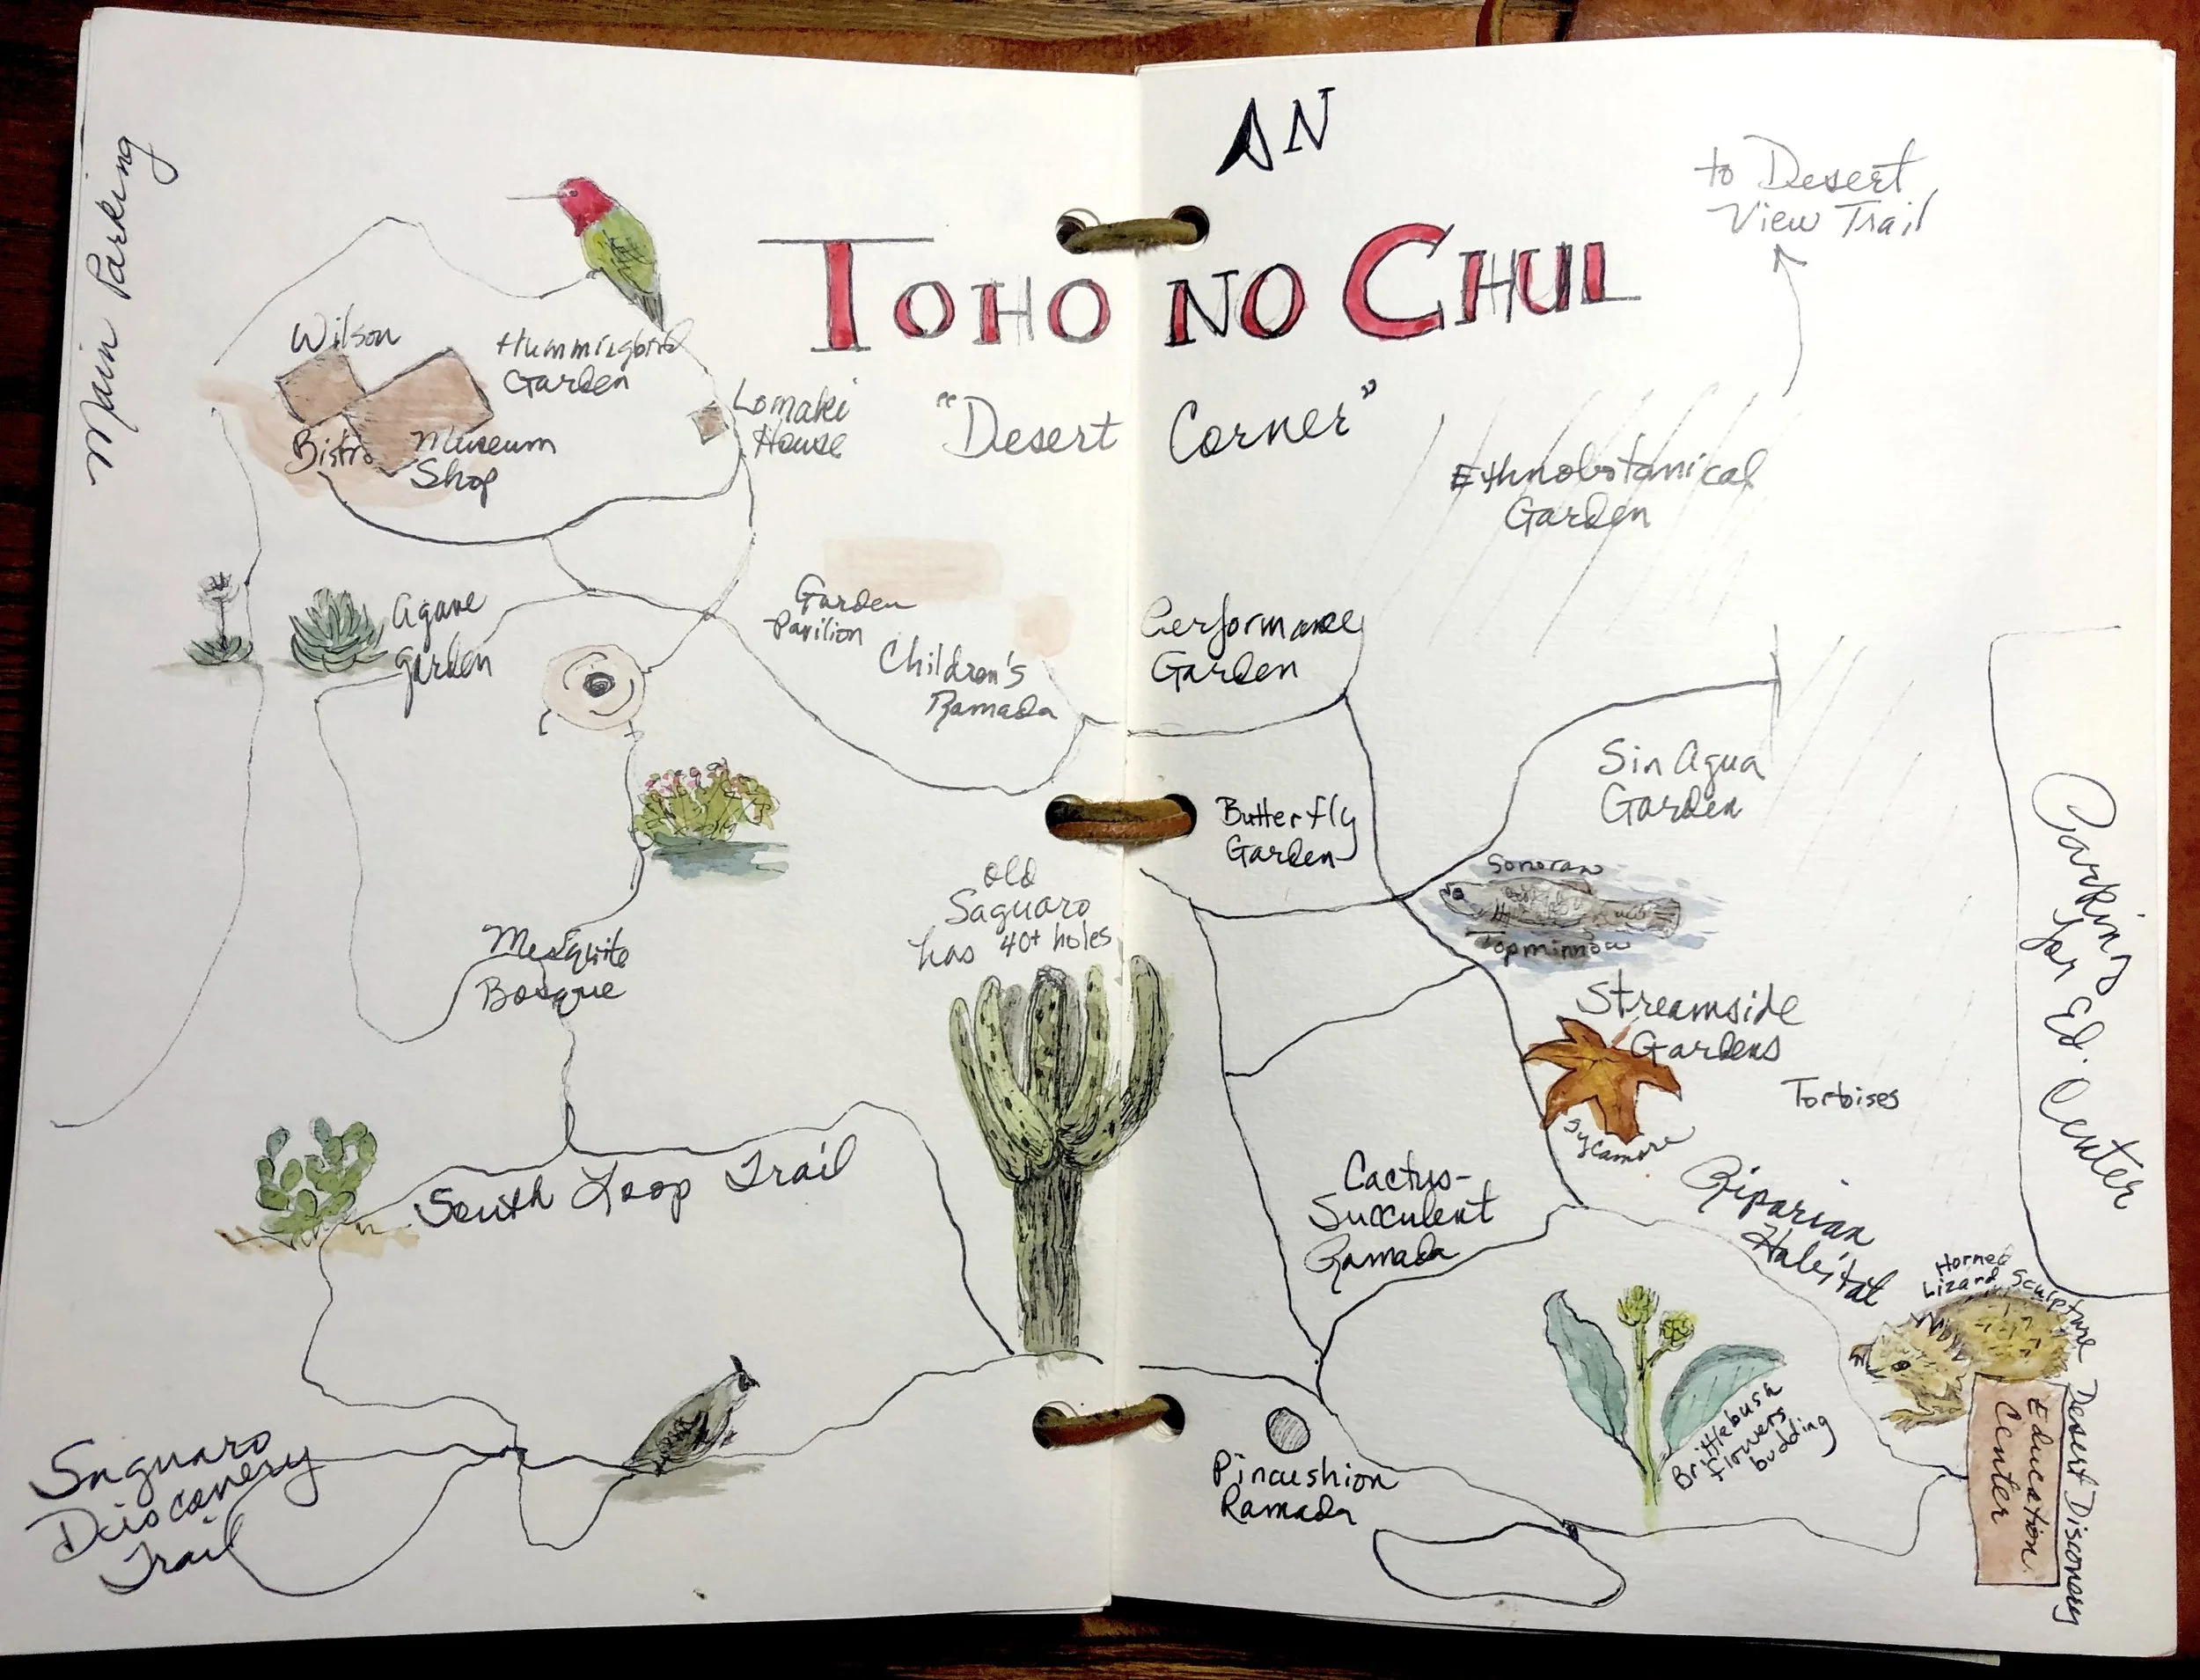 N
to Desert
View Trail
TOHONO CHUL
"Desert Corner"
Main Parking
Wilson
Bistro
Museum
Shop
Hummingbird
Garden
Lomaki
House
Ethnobotanical
Garden
Agave
Garden
Garden
Pavilion
Children's
Ramada
Performance
Garden
Butterfly
Garden
Sin Agua
Garden
Sonoran
Topminnow
Streamside
Gardens
Sycamore
Tortoises
Parking
for Ed. Center
old
Saguaro
has 40+ holes
Mesquite
Bosque
South Loop Trail
Cactus-
Succulent
Ramada
Riparian
Habitat
Horned
Lizard Sculpture
Brittlebush
flowers
budding
Saguaro
Discovery
Trail
Pincushion
Ramada
Desert Discovery
Education
Center